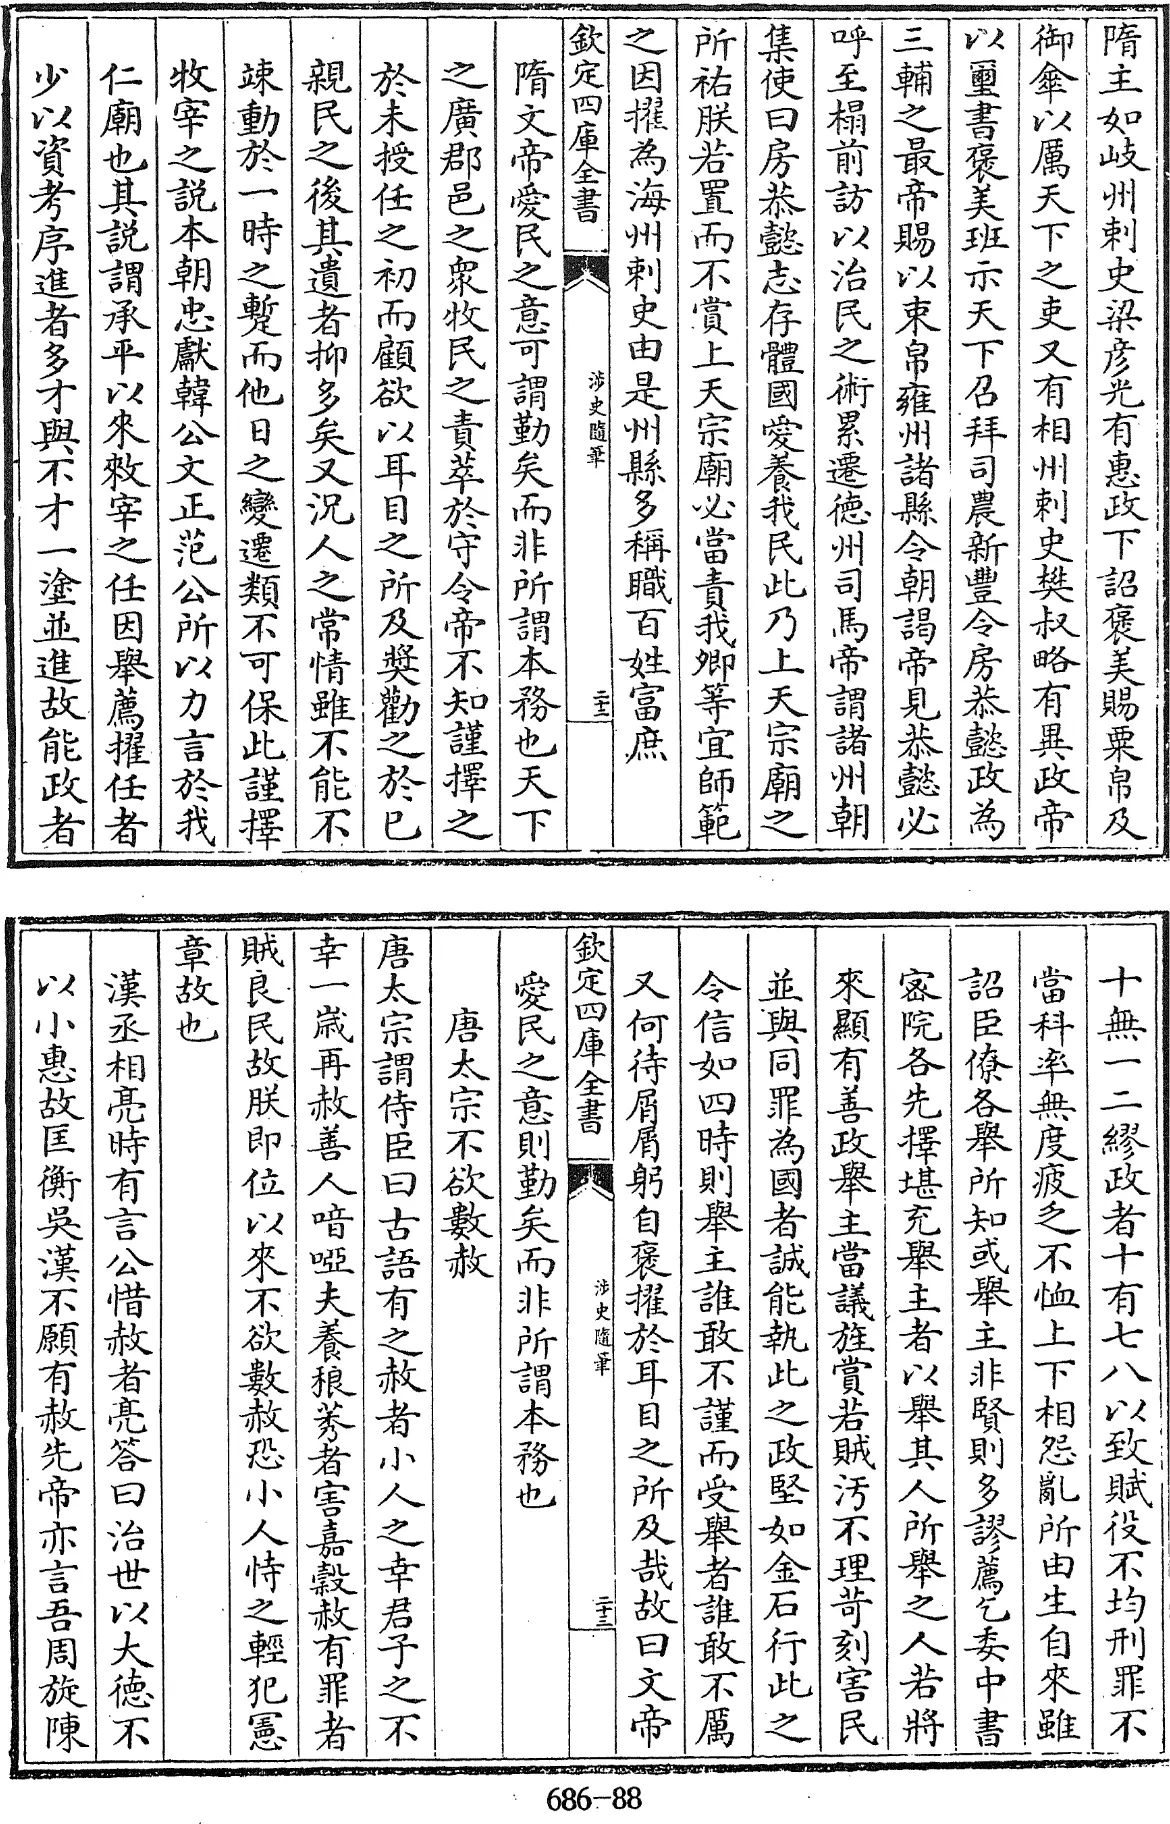 隋主如岐州刺史梁彦光有惠政下詔褒美賜粟帛及
御傘以厲天下之吏又有相州刺史樊叔略有異政帝
以璽書褒美班示天下召拜司農新豐令房恭懿政為
三輔之最帝賜以束帛雍州諸縣令朝謁帝見恭懿必
呼至榻前訪以治民之術累遷德州司馬帝謂諸州朝
集使曰房恭懿志存體國愛養我民此乃上天宗廟之
所祐朕若置而不賞上天宗廟必當責我卿等宜師範
之因擢為海州刺史由是州縣多稱職百姓富庶
欽定四庫全書
涉史隨筆
二十二
隋文帝愛民之意可謂勤矣而非所謂本務也天下
之廣郡邑之衆牧民之責萃於守令帝不知謹擇之
於未授任之初而顧欲以耳目之所及奬勸之於已
親民之後其遺者抑多矣又況人之常情雖不能不
竦動於一時之蹔而他日之變遷類不可保此謹擇
牧宰之説本朝忠獻韓公文正范公所以力言於我
仁廟也其説謂承平以來敕宰之任因舉薦擢任者
少以資考序進者多才與不才一塗並進故能政者
十無一二繆政者十有七八以致賦役不均刑罪不
當科率無度疲乏不恤上下相怨亂所由生自來雖
詔臣僚各舉所知或舉主非賢則多謬薦乞委中書
宻院各先擇堪充舉主者以舉其人所舉之人若將
來顯有善政舉主當議旌賞若賊汚不理苛刻害民
並與同罪為國者誠能執此之政堅如金石行此之
令信如四時則舉主誰敢不謹而受舉者誰敢不厲
又何待屑屑躬自褒擢於耳目之所及哉故曰文帝
欽定四庫全書
涉史隨筆
二十三
愛民之意則勤矣而非所謂本務也
唐太宗不欲數赦
唐太宗謂侍臣曰古語有之赦者小人之幸君子之不
幸一嵗再赦善人喑啞夫養稂莠者害嘉穀赦有罪者
賊良民故朕即位以來不欲數赦恐小人恃之輕犯憲
章故也
漢丞相亮時有言公惜赦者亮答曰治世以大德不
以小惠故匡衡吳漢不願有赦先帝亦言吾周旋陳
686-88